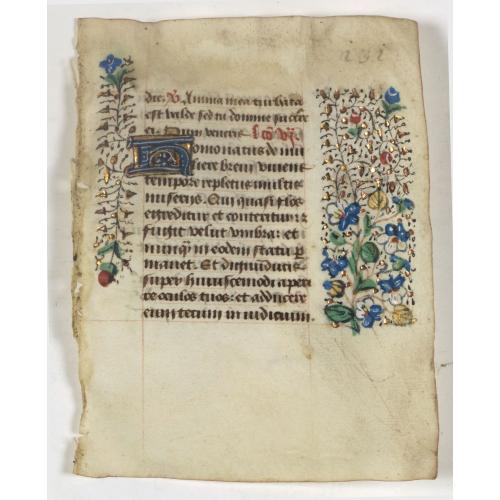 231
die. V. Anima mea turbata
est valde sed tu domine succurre
ei. Dum veneris. lco vi.
Homo natus de mu
liere brevi vivens
tempore repletus multis
miserijs. Qui quasi flos
egreditur et conteritur: et
fugit velut umbra: et
nunq̃ in eodem statu p̃
manet. Et dignũ ducis
super huiuscemodi aperi
re oculos tuos: et adducere
eum tecum in iudicium.